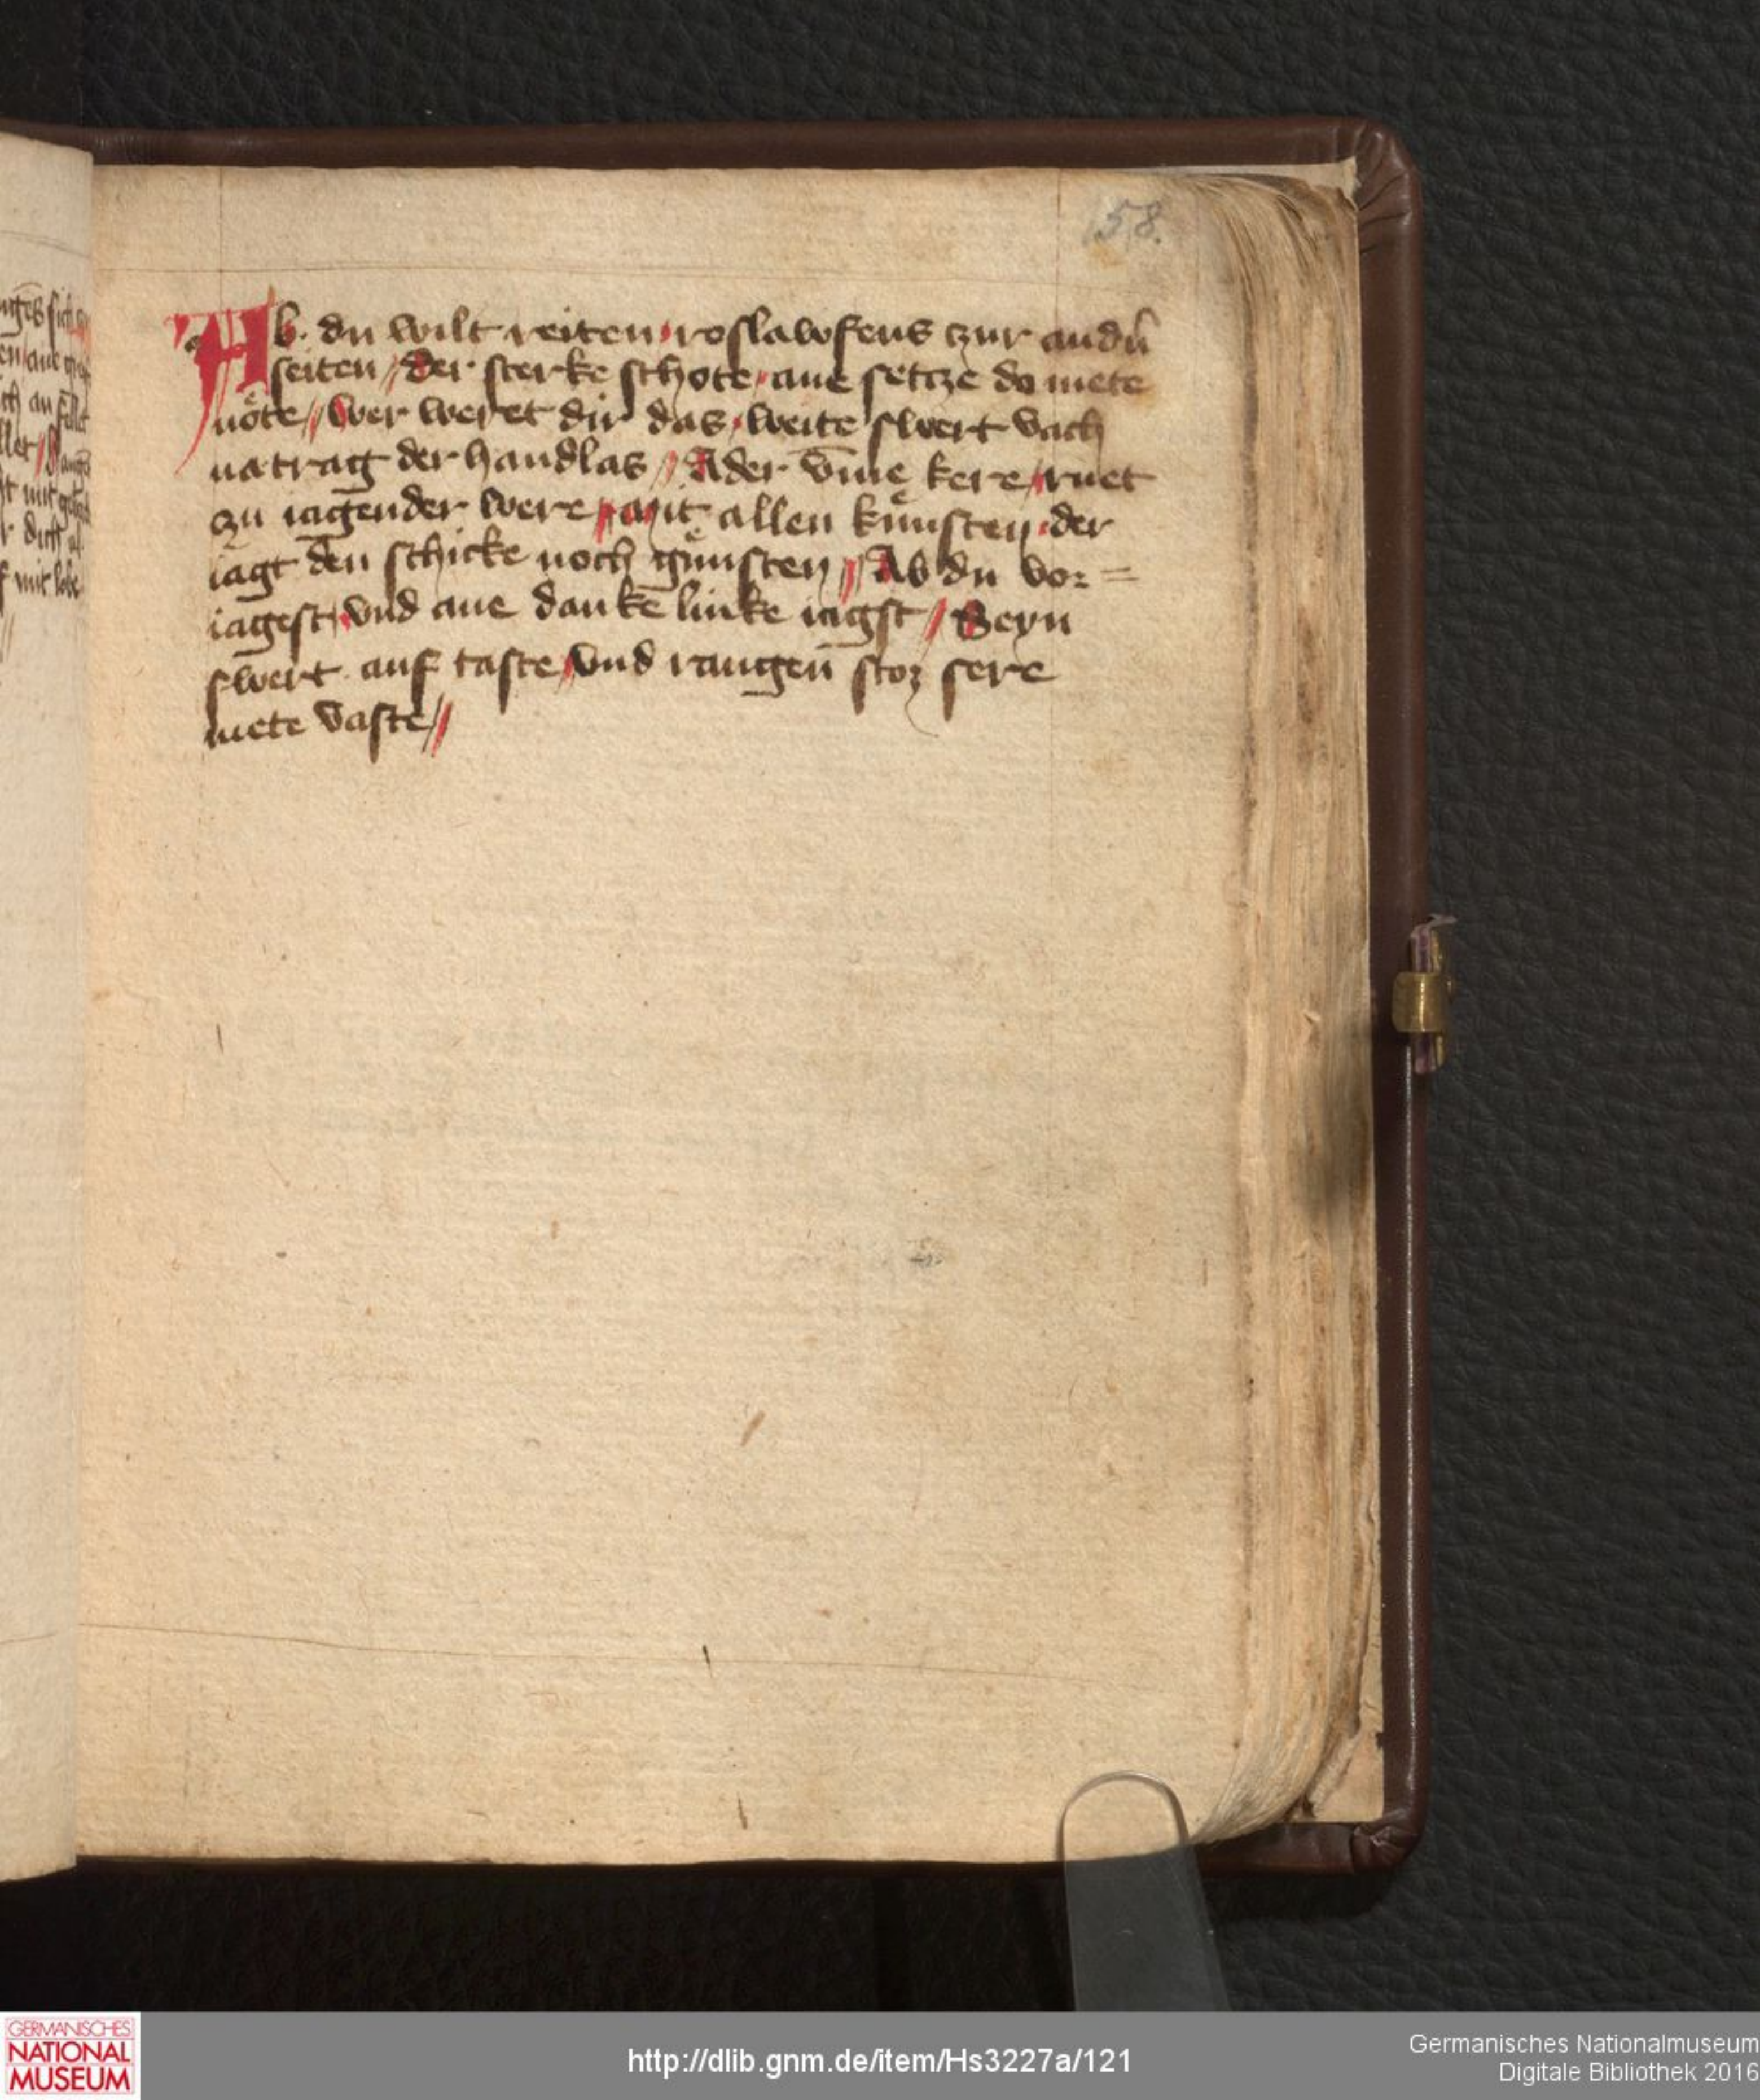 58.
Ab · du wilt reiten / roslawfens czur andn̄
seiten // der sterke schote / ane setcze do mete
nöte // Wer weret dir das / weite swert vach
natrag der handlas // Ader v̄me kere / ruet
zu iagender were // mit allen kunͤsten / der
iagt den schicke noch gunͤsten // Ab du vor=
iagest / vnd ane dankē linke iagst // Seyn
swert · auf taste / vnd rangen̄ stoz sere
mete vaste //
GERMANISCHES
NATIONAL
MUSEUM
http://dlib.gnm.de/item/Hs3227a/121
Germanisches Nationalmuseum
Digitale Bibliothek 2016